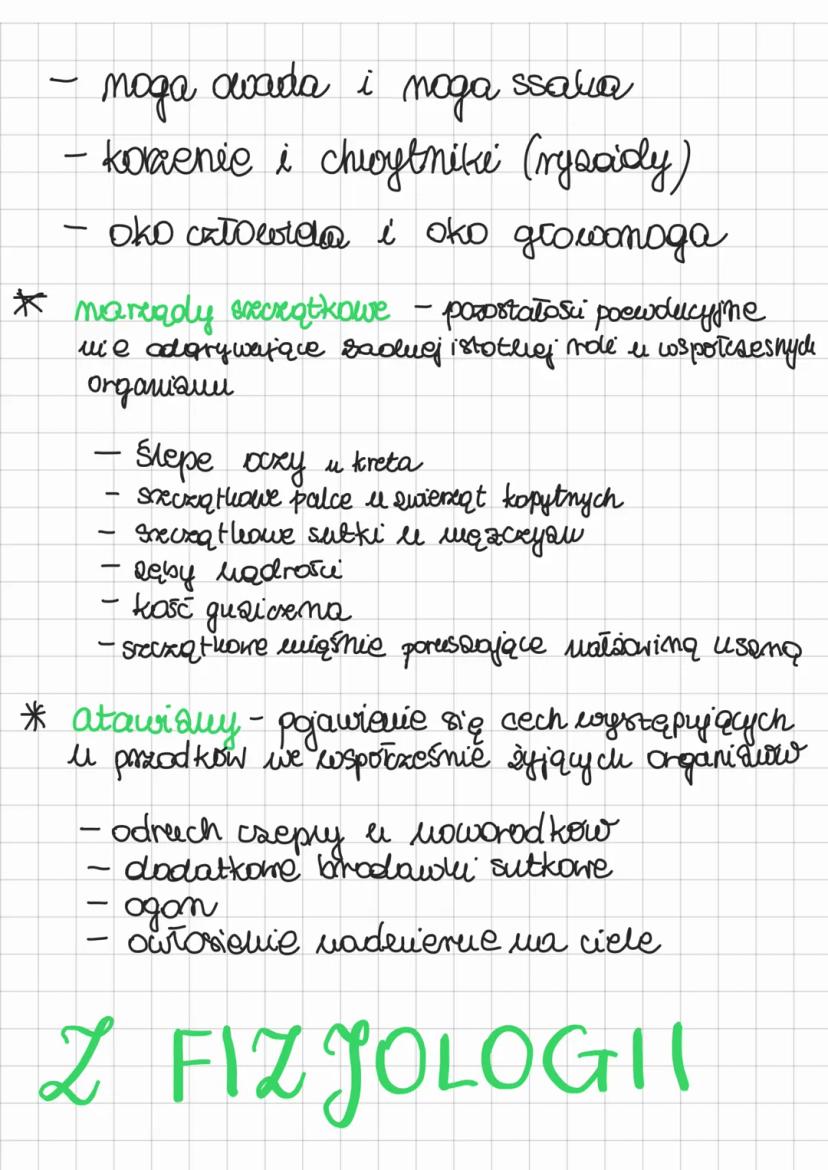 - noga owada i noga ssaka
- korzenie i chwytniki (ryzoidy)
- oko człowieka i oko głowonoga
* narządy szczątkowe - pozostałości poewolucyjne
nie odgrywające żadnej istotnej roli u współczesnych
organizmu
- ślepe oczy u kreta
- szczątkowe palce u zwierząt kopytnych
- szczątkowe sutki u mężczyzn
- zęby mądrości
- kość guziczna
- szczątkowe mięśnie poruszające małżowiną uszną
* atawizmy - pojawienie się cech występujących
u przodków we współcześnie żyjących organizmów
- odruch czepny u noworodków
- dodatkowe brodawki sutkowe
- ogon
- owłosienie nadmierne na ciele
Z FIZJOLOGII